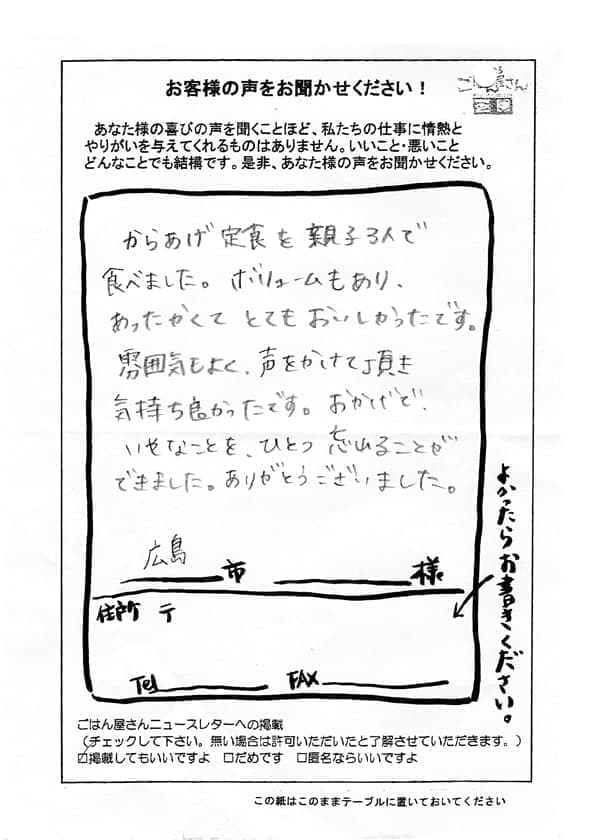 お客様の声をお聞かせください！
ごはん屋さん
あなた様の喜びの声を聞くことほど、私たちの仕事に情熱と
やりがいを与えてくれるものはありません。いいこと・悪いこと
どんなことでも結構です。是非、あなた様の声をお聞かせください。
からあげ定食を親子3人で
食べました。ボリュームもあり、
あったかくてとてもおいしかったです。
雰囲気もよく、声をかけて頂き
気持ち良かったです。おかげで、
いやなことを、ひとつ忘れることが
できました。ありがとうございました。
広島市 様
住所 〒
Tel FAX
よかったらお書きください。
ごはん屋さんニュースレターへの掲載
（チェックして下さい。無い場合は許可いただいたと了解させていただきます。）
☑掲載してもいいですよ □だめです □匿名ならいいですよ
この紙はこのままテーブルに置いておいてください